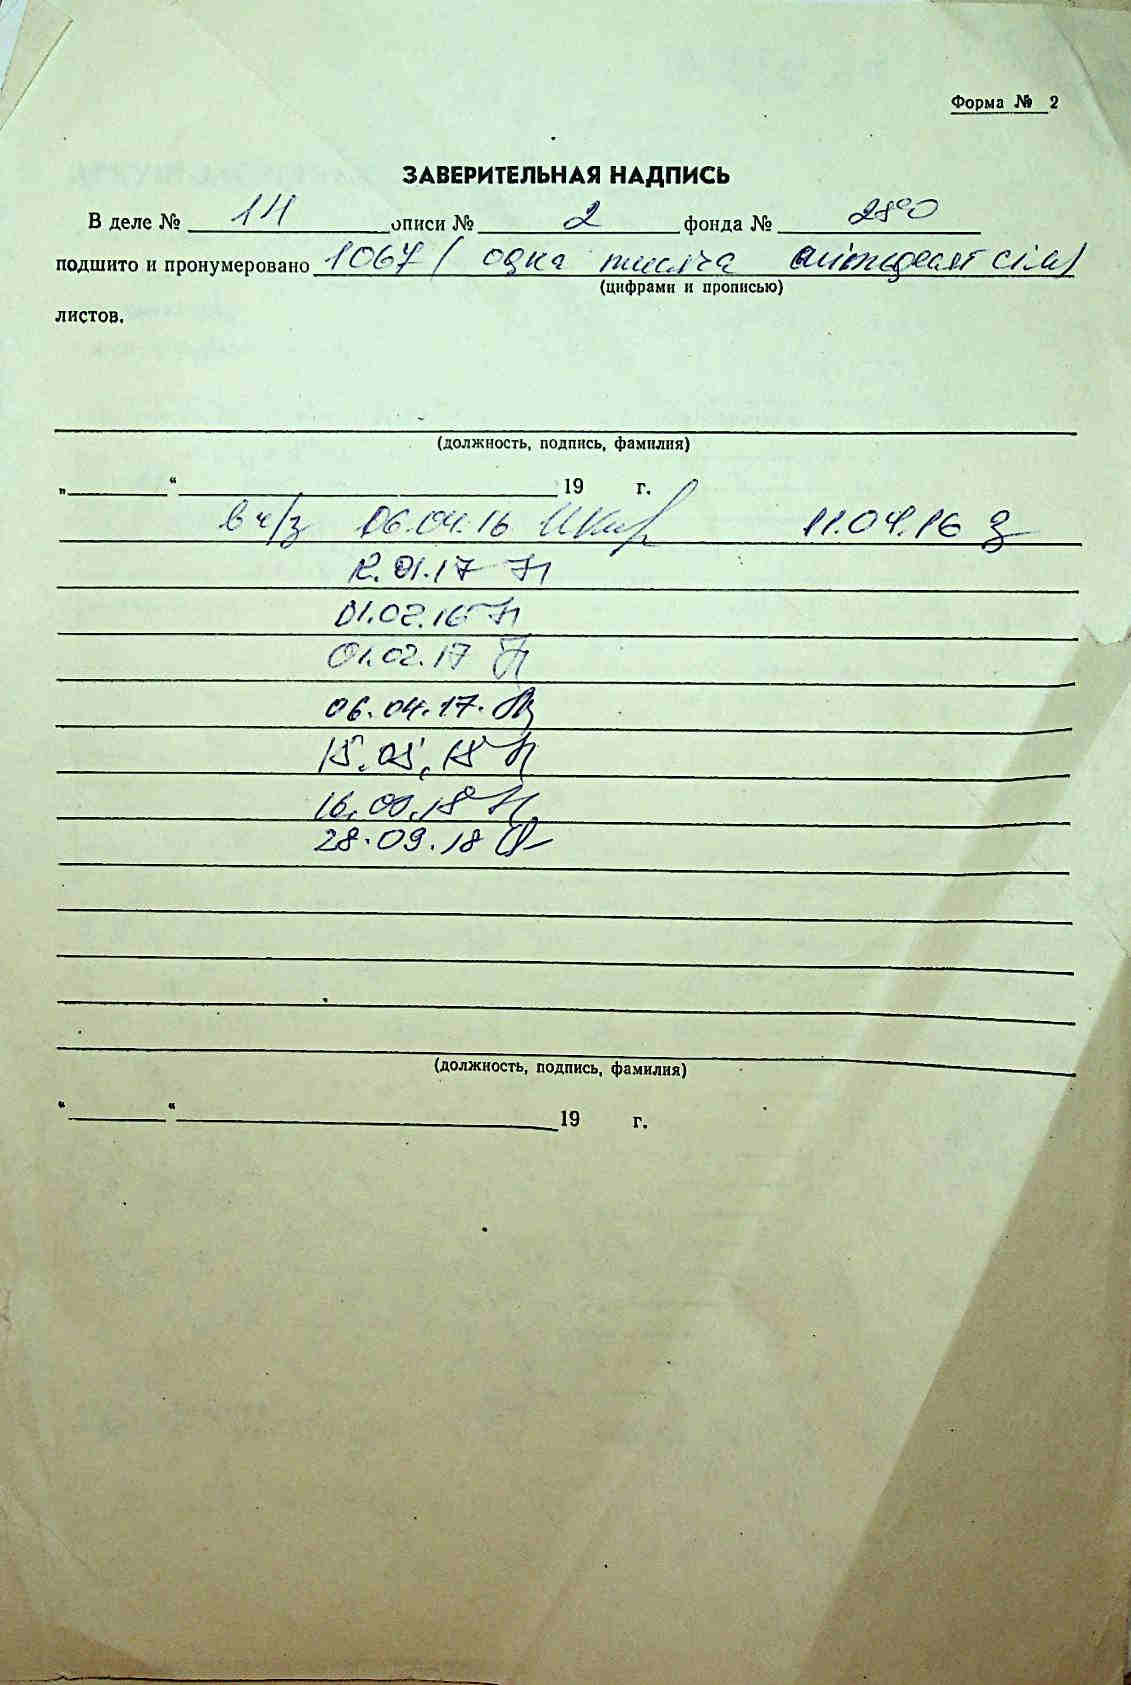 Форма № 2
ЗАВЕРИТЕЛЬНАЯ НАДПИСЬ
В деле № 14 описи № 2 фонда №
подшито и пронумеровано 1067 / одна тисяча шістдесят сім /
(цифрами и прописью)
листов.
(должность, подпись, фамилия)
„ “ 19 г.
в ч/з 06.04.16 11.04.16
12.01.17
01.02.16
01.02.17
06.04.17.
15.05.18
16.
28.09.18
(должность, подпись, фамилия)
“ “ 19 г.